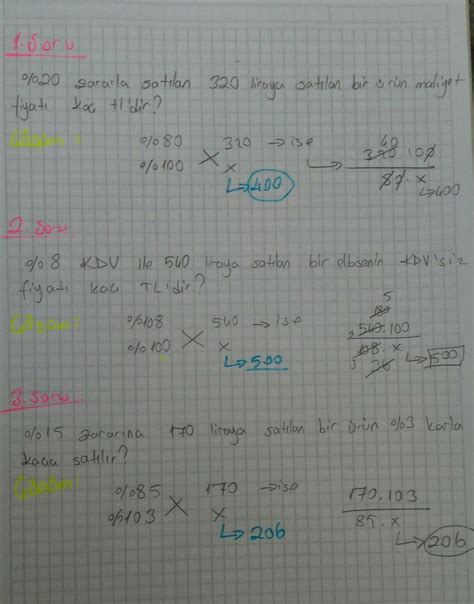 1. Soru
%20 zararla satılan 320 liraya satılan bir ürün maliyet
fiyatı kaç tl'dir?
Çözüm:
%80 320 → ise
%100 x
↳ 400
40
320.100
80.x
↳ 400
2. Soru
%8 KDV ile 540 liraya satılan bir elbisenin KDV'siz
fiyatı kaç TL'dir?
Çözüm:
%108 540 → ise
%100 x
↳ 500
5
180
540.100
108.x
36
↳ 500
3. Soru
%15 zararına 170 liraya satılan bir ürün %3 karla
kaça satılır?
Çözüm:
%85 170 → ise
%103 x
↳ 206
170.103
85.x
↳ 206